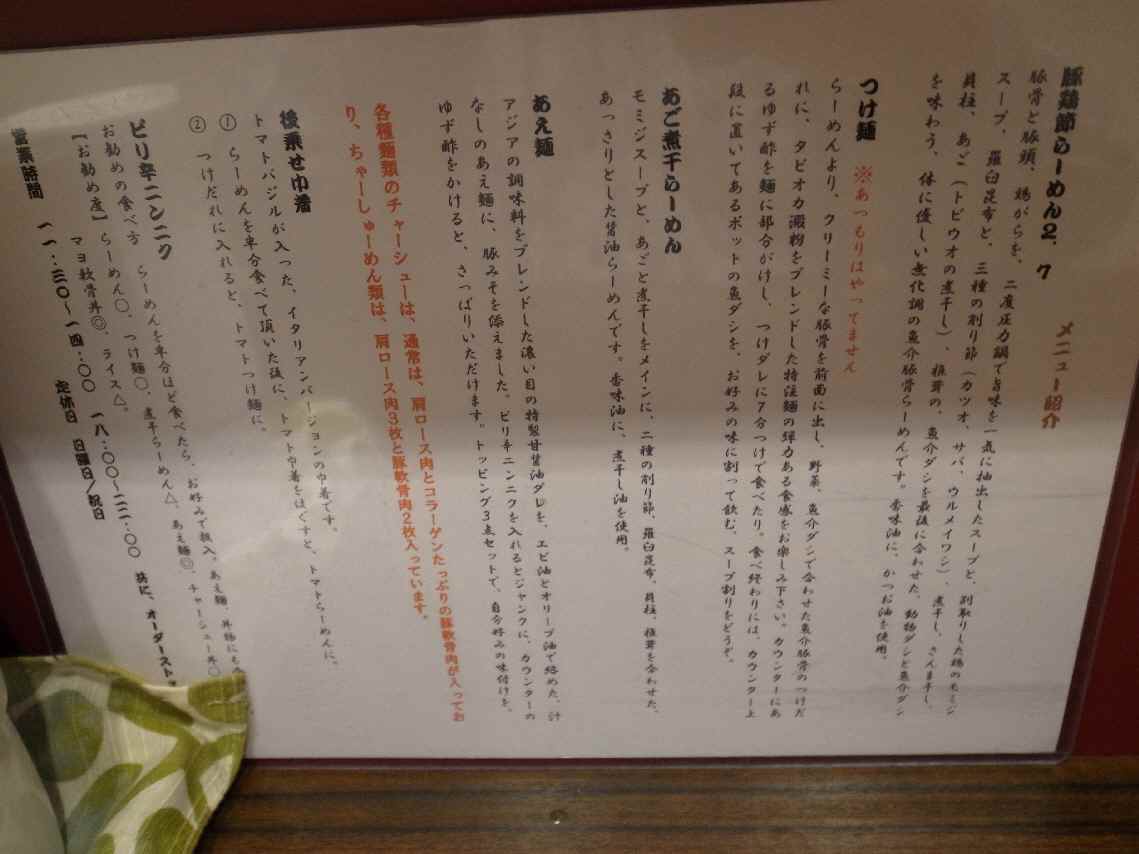 豚鶏節らーめん2．7　メニュー紹介
豚骨と豚頭、鶏がらを、二度圧力鍋で旨味を一気に抽出したスープと、別取りした鶏のモミジ
スープ、羅臼昆布と、三種の削り節（カツオ、サバ、ウルメイワシ）、煮干し、さんま干し、
貝柱、あご（トビウオの煮干し）、椎茸の、魚介ダシを最後に合わせた、動物ダシと魚介ダシ
を味わう、体に優しい無化調の魚介豚骨らーめんです。香味油に、かつお油を使用。
つけ麺　※あつもりはやってません
らーめんより、クリーミーな豚骨を前面に出し、野菜、魚介ダシで合わせた魚介豚骨のつけだ
れに、タピオカ澱粉をブレンドした特注麺の弾力ある食感をお楽しみ下さい。カウンターにあ
るゆず酢を麺に部分がけし、つけダレに7分つけで食べたり。食べ終わりには、カウンター上
段に置いてあるポットの魚ダシを、お好みの味に割って飲む、スープ割りをどうぞ。
あご煮干らーめん
モミジスープと、あごと煮干しをメインに、二種の削り節、羅臼昆布、貝柱、椎茸を合わせた、
あっさりとした醤油らーめんです。香味油に、煮干し油を使用。
あえ麺
アジアの調味料をブレンドした濃い目の特製甘醤油ダレを、エビ油とオリーブ油で絡めた、汁
なしのあえ麺に、豚みそを添えました。ピリ辛ニンニクを入れるとジャンクに、カウンターの
ゆず酢をかけると、さっぱりいただけます。トッピング3点セットで、自分好みの味付けを。
各種麺類のチャーシューは、通常は、肩ロース肉とコラーゲンたっぷりの豚軟骨肉が入ってお
り、ちゃーしゅーめん類は、肩ロース肉3枚と豚軟骨肉2枚入っています。
後乗せ巾着
トマトバジルが入った、イタリアンバージョンの巾着です。
① らーめんを半分食べて頂いた後に、トマト巾着をほぐすと、トマトらーめんに。
② つけだれに入れると、トマトつけ麺に。
ピリ辛ニンニク
お勧めの食べ方　らーめんを半分ほど食べたら、お好みで投入。あえ麺、丼物にも
【お勧め度】らーめん〇、つけ麺〇、煮干らーめん△、あえ麺◎、チャーシュー丼〇
マヨ軟骨丼◎、ライス△。
営業時間　一一：三〇〜一四：〇〇　一八：〇〇〜二二：〇〇　共に、オーダースト
定休日　日曜日／祝日